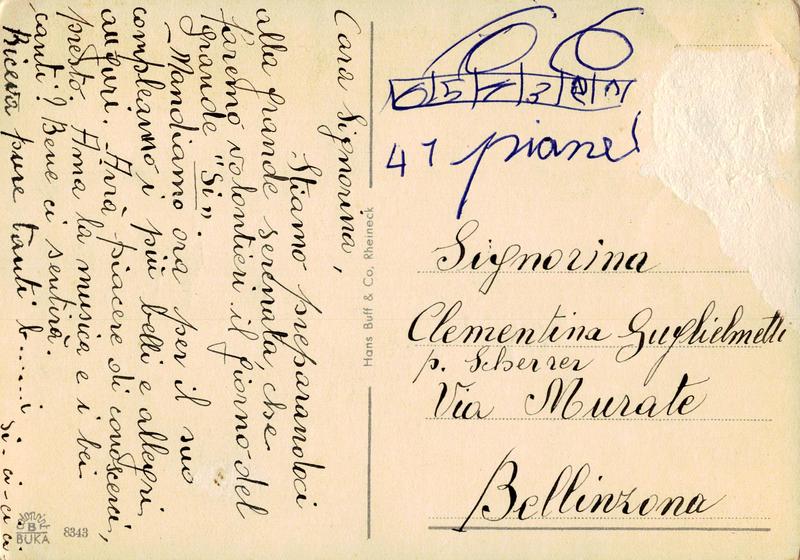 Cara Signorina,
Stiamo preparandoci
alla grande serenata, che
faremo volontieri il giorno del
grande "Si".
Mandiamo ora per il suo
compleanno i più belli e allegri
auguri. Avrà piacere di conoscerci,
presto. Ama la musica e i bei
canti? Bene ci sentirà.
Riceva pure tanti b.....i
si-ci-ci ci
Hans Buff & Co, Rheineck
BUKA
8343
66
41 piane
Signorina
Clementina Guglielmetti
p. Scherrer
Via Murate
Bellinzona